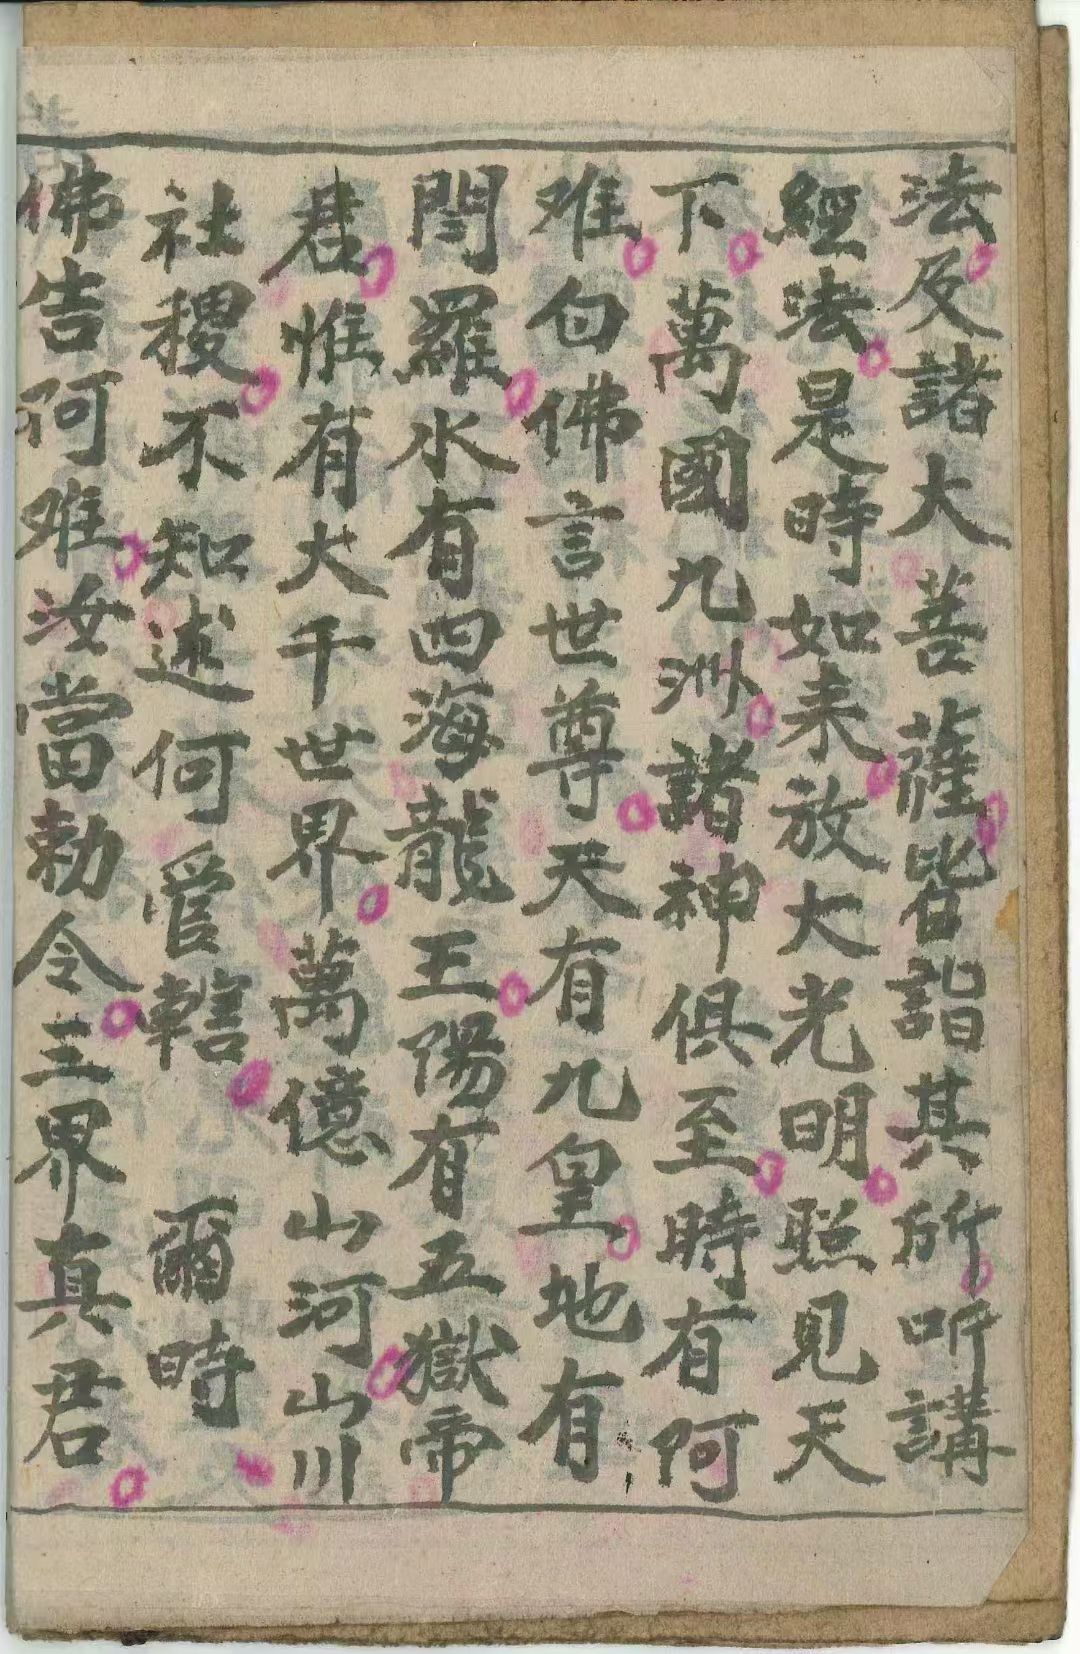 法及諸大菩薩皆詣其所听講
經法是時如来放大光明照見天
下萬國九洲諸神俱至時有阿
难白佛言世尊天有九皇地有
閆羅水有四海龍王陽有五獄帝
君惟有大千世界萬億山河山川
社稷不知述何管轄 爾時
佛告阿难汝當勅令三界真君